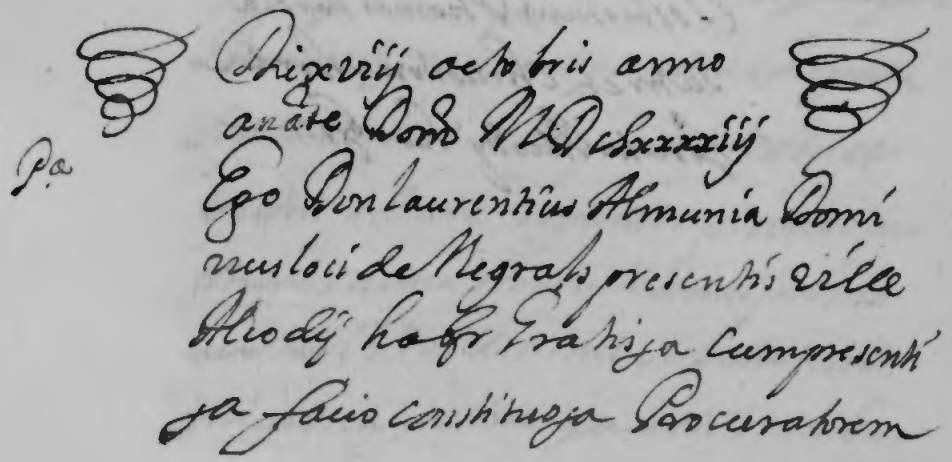 Die xviij octobris anno
anate Domi M Dclxxxxiij
Pa
Ego Don laurentius Almunia Domi
nus loci de Negrals presentis ville
Alcodij habr Gratis ja cum presenti
ja facio constituo ja Procuratorem